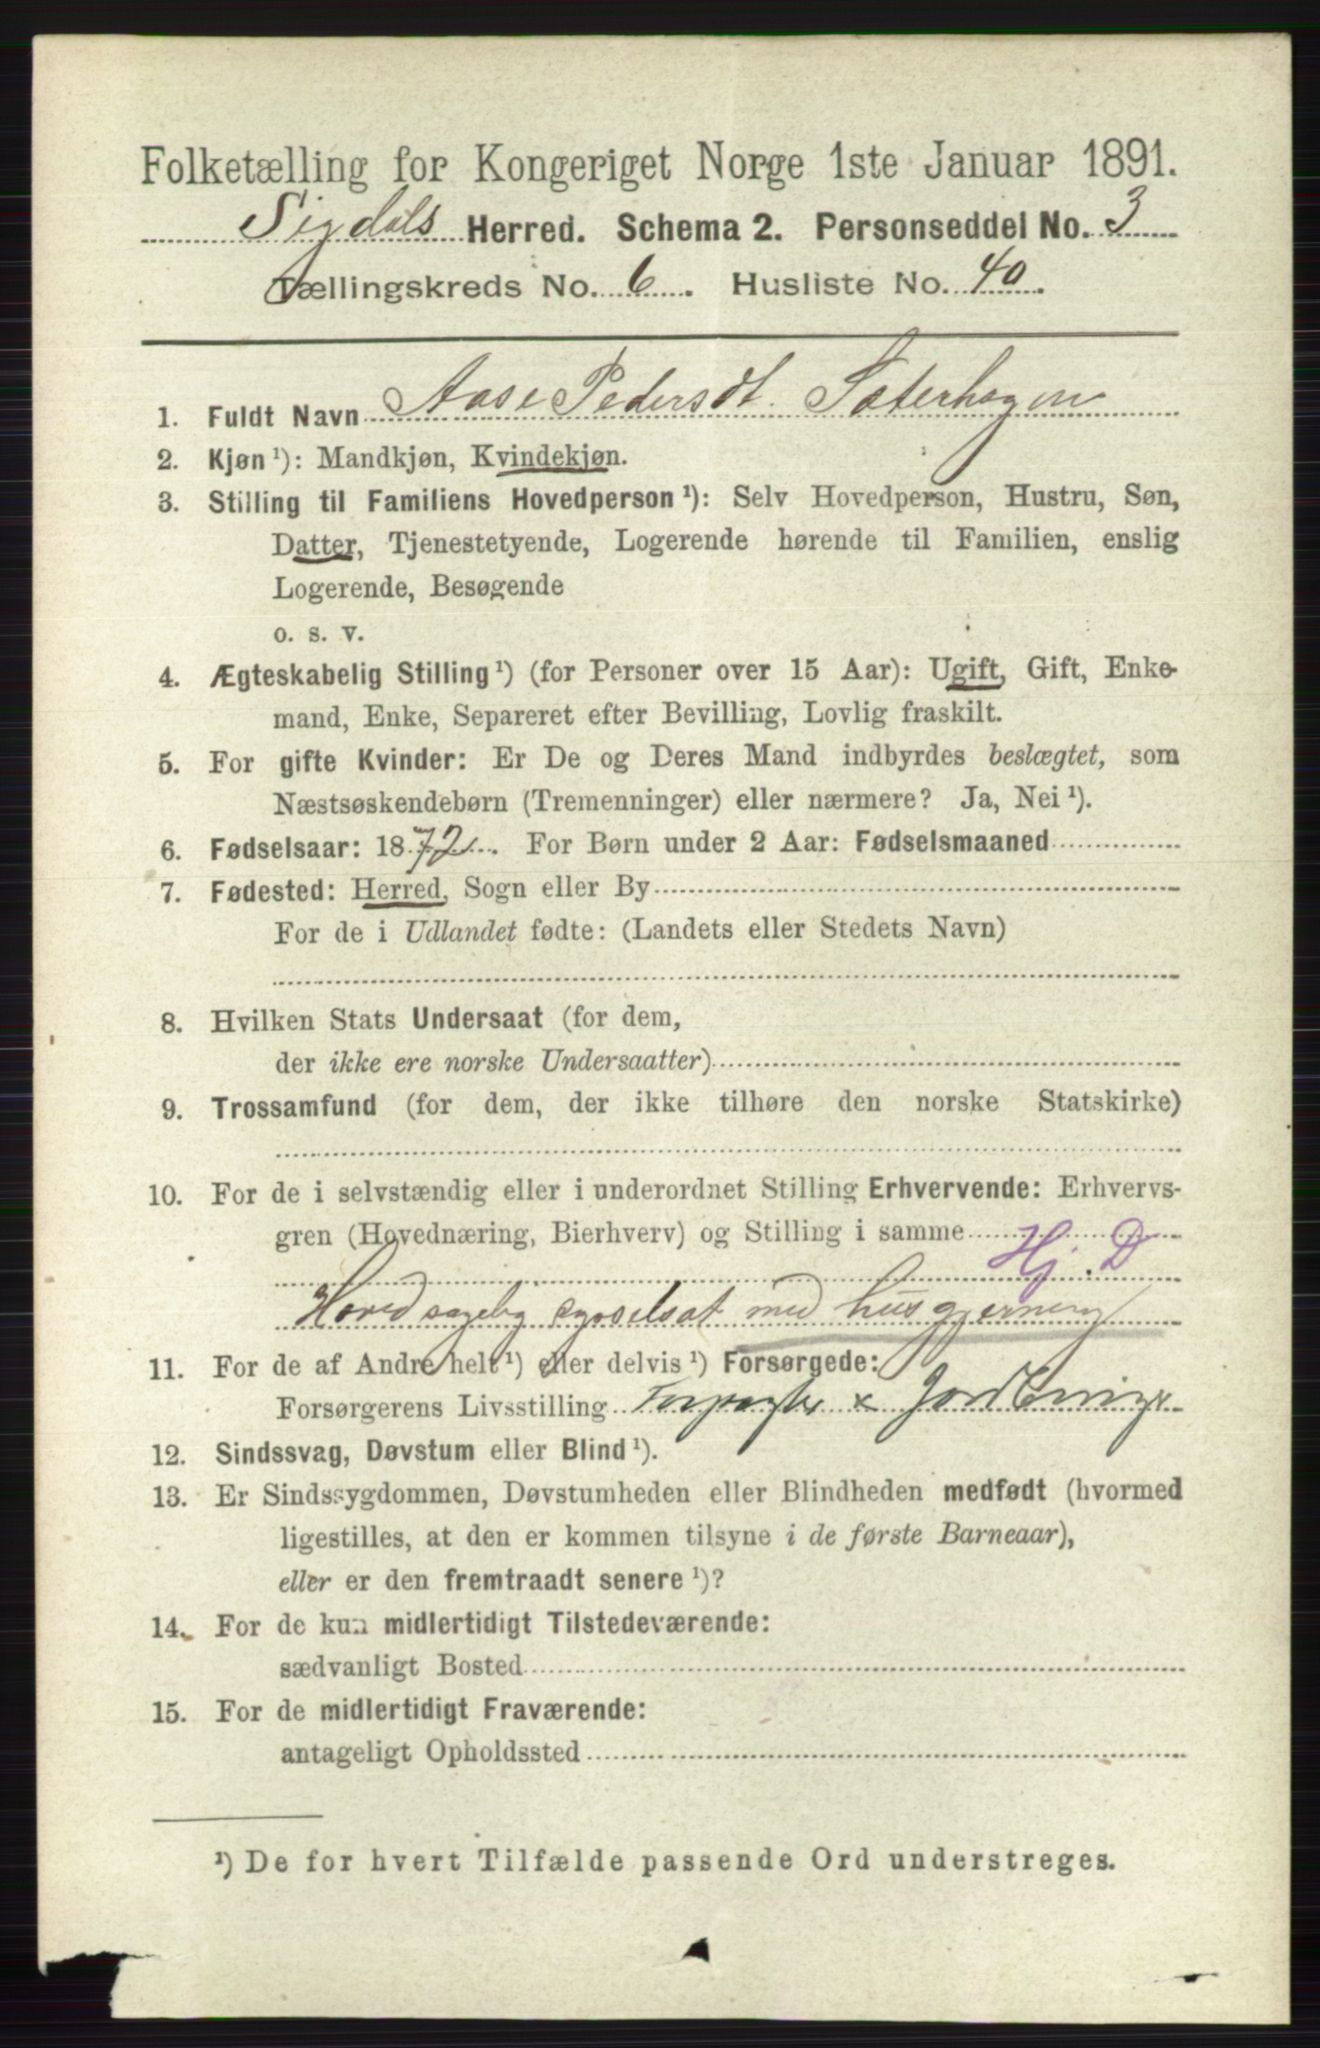 Folketælling for Kongeriget Norge 1ste Januar 1891.
Sigdals Herred. Schema 2. Personseddel No. 3
Tællingskreds No. 6. Husliste No. 40.
1. Fuldt Navn Aase Pedersdt. Sæterhagen
2. Kjøn¹): Mandkjøn, Kvindekjøn.
3. Stilling til Familiens Hovedperson¹): Selv Hovedperson, Hustru, Søn,
Datter, Tjenestetyende, Logerende hørende til Familien, enslig
Logerende, Besøgende
o. s. v.
4. Ægteskabelig Stilling¹) (for Personer over 15 Aar): Ugift, Gift, Enke-
mand, Enke, Separeret efter Bevilling, Lovlig fraskilt.
5. For gifte Kvinder: Er De og Deres Mand indbyrdes beslægtet, som
Næstsøskendebørn (Tremenninger) eller nærmere? Ja, Nei¹).
6. Fødselsaar: 1872. For Børn under 2 Aar: Fødselsmaaned
7. Fødested: Herred, Sogn eller By
For de i Udlandet fødte: (Landets eller Stedets Navn)
8. Hvilken Stats Undersaat (for dem,
der ikke ere norske Undersaatter)
9. Trossamfund (for dem, der ikke tilhøre den norske Statskirke)
10. For de i selvstændig eller i underordnet Stilling Erhvervende: Erhvervs-
gren (Hovednæring, Bierhverv) og Stilling i samme
Hj. D
Hovedsagelig sysselsat med husgjerning
11. For de af Andre helt¹) eller delvis¹) Forsørgede:
Forsørgerens Livsstilling
12. Sindssvag, Døvstum eller Blind¹).
13. Er Sindssygdommen, Døvstumheden eller Blindheden medfødt (hvormed
ligestilles, at den er kommen tilsyne i de første Barneaar),
eller er den fremtraadt senere¹)?
14. For de kun midlertidigt Tilstedeværende:
sædvanligt Bosted
15. For de midlertidigt Fraværende:
antageligt Opholdssted
¹) De for hvert Tilfælde passende Ord understreges.